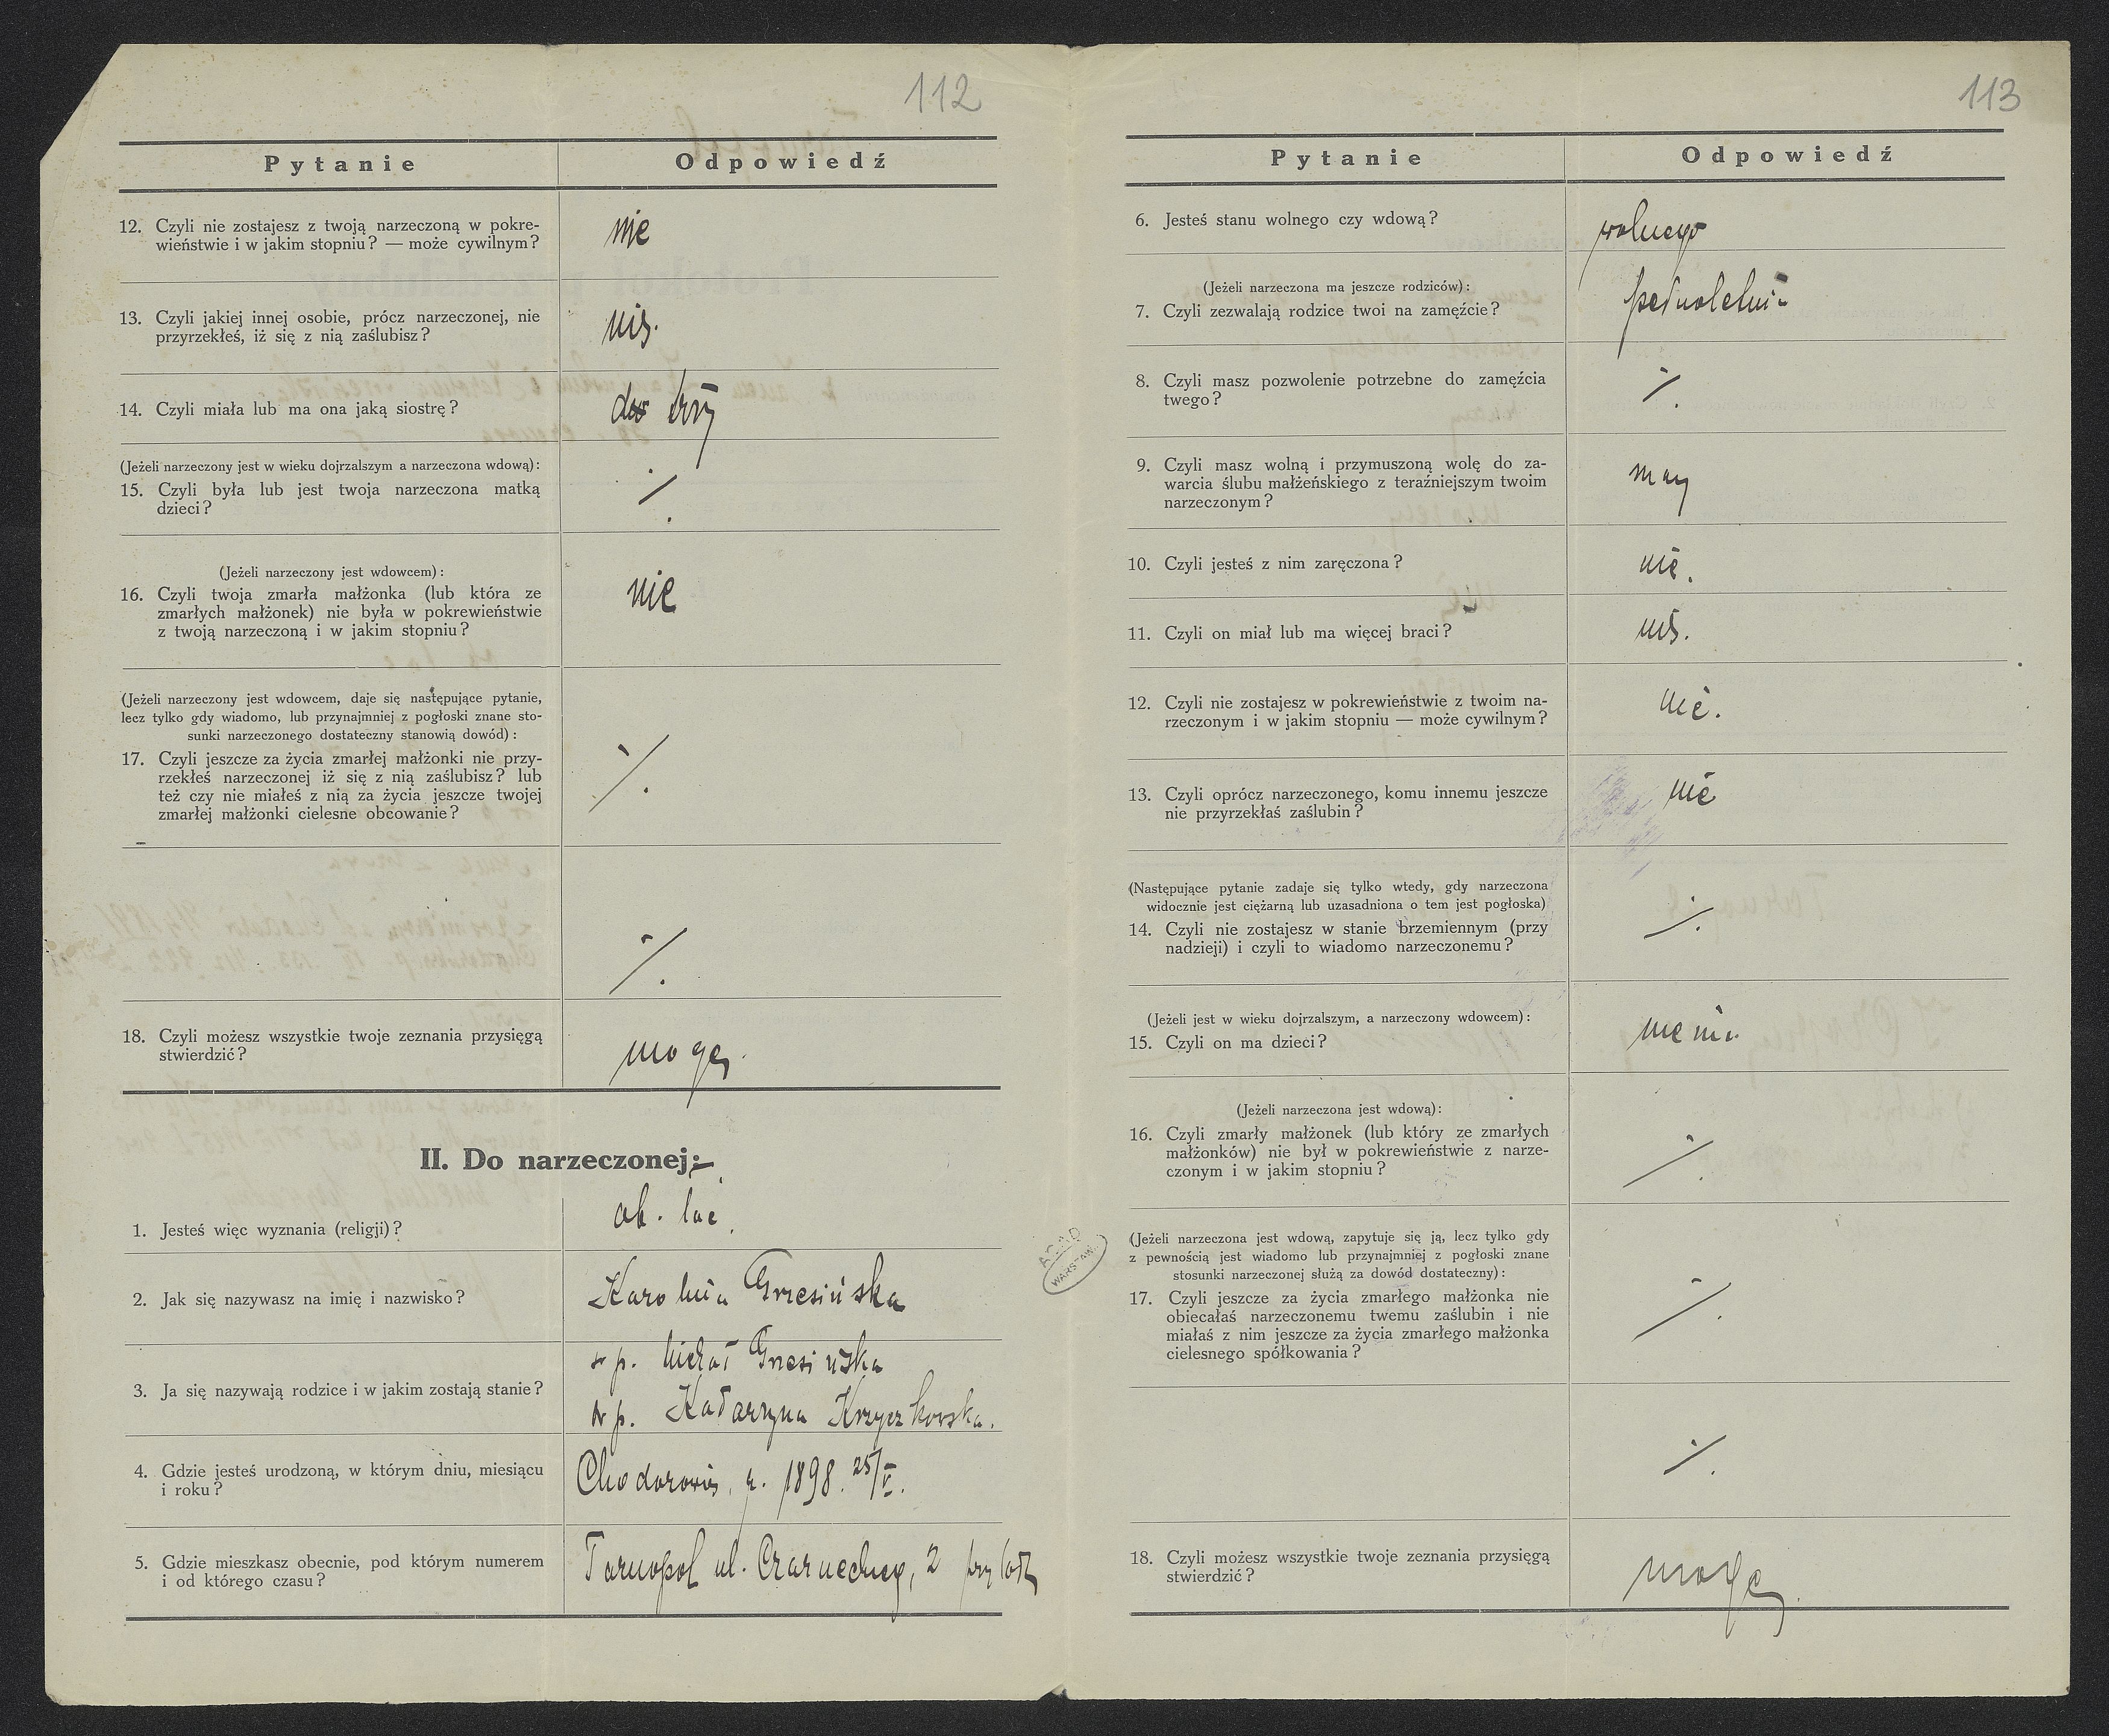 112
Pytanie Odpowiedź
12. Czyli nie zostajesz z twoją narzeczoną w pokre-
wieństwie i w jakim stopniu? — może cywilnym?
nie
13. Czyli jakiej innej osobie, prócz narzeczonej, nie
przyrzekłeś, iż się z nią zaślubisz?
nie.
14. Czyli miała lub ma ona jaką siostrę?
trzy
(Jeżeli narzeczony jest w wieku dojrzalszym a narzeczona wdową):
15. Czyli była lub jest twoja narzeczona matką
dzieci?
(Jeżeli narzeczony jest wdowcem):
16. Czyli twoja zmarła małżonka (lub która ze
zmarłych małżonek) nie była w pokrewieństwie
z twoją narzeczoną i w jakim stopniu?
nie
(Jeżeli narzeczony jest wdowcem, daje się następujące pytanie,
lecz tylko gdy wiadomo, lub przynajmniej z pogłoski znane sto-
sunki narzeczonego dostateczny stanowią dowód):
17. Czyli jeszcze za życia zmarłej małżonki nie przy-
rzekłeś narzeczonej iż się z nią zaślubisz? lub
też czy nie miałeś z nią za życia jeszcze twojej
zmarłej małżonki cielesne obcowanie?
%
%
18. Czyli możesz wszystkie twoje zeznania przysięgą
stwierdzić?
mogę.
II. Do narzeczonej:
1. Jesteś więc wyznania (religji)?
ob. łac.
2. Jak się nazywasz na imię i nazwisko?
Karolina Grzesińska
3. Ja się nazywają rodzice i w jakim zostają stanie?
ś p. Michał Grzesińska
ś p. Katarzyna Krzyczkowska.
4. Gdzie jesteś urodzoną, w którym dniu, miesiącu
i roku?
Chodorów, r. 1898. 25/V.
5. Gdzie mieszkasz obecnie, pod którym numerem
i od którego czasu?
Tarnopol ul. 2
113
Pytanie Odpowiedź
6. Jesteś stanu wolnego czy wdową?
wolnego
(Jeżeli narzeczona ma jeszcze rodziców):
7. Czyli zezwalają rodzice twoi na zamęźcie?
pełnoletnia
8. Czyli masz pozwolenie potrzebne do zamęźcia
twego?
%
9. Czyli masz wolną i przymuszoną wolę do za-
warcia ślubu małżeńskiego z teraźniejszym twoim
narzeczonym?
mam
10. Czyli jesteś z nim zaręczona?
nie.
11. Czyli on miał lub ma więcej braci?
nie.
12. Czyli nie zostajesz w pokrewieństwie z twoim na-
rzeczonym i w jakim stopniu — może cywilnym?
nie.
13. Czyli oprócz narzeczonego, komu innemu jeszcze
nie przyrzekłaś zaślubin?
nie
(Następujące pytanie zadaje się tylko wtedy, gdy narzeczona
widocznie jest ciężarną lub uzasadniona o tem jest pogłoska)
14. Czyli nie zostajesz w stanie brzemiennym (przy
nadzieji) i czyli to wiadomo narzeczonemu?
%
(Jeżeli jest w wieku dojrzalszym, a narzeczony wdowcem):
15. Czyli on ma dzieci?
nie ma
(Jeżeli narzeczona jest wdową):
16. Czyli zmarły małżonek (lub który ze zmarłych
małżonków) nie był w pokrewieństwie z narze-
czonym i w jakim stopniu?
%
(Jeżeli narzeczona jest wdową, zapytuje się ją, lecz tylko gdy
z pewnością jest wiadomo lub przynajmniej z pogłoski znane
stosunki narzeczonej służą za dowód dostateczny):
17. Czyli jeszcze za życia zmarłego małżonka nie
obiecałaś narzeczonemu twemu zaślubin i nie
miałaś z nim jeszcze za życia zmarłego małżonka
cielesnego spółkowania?
%
%
18. Czyli możesz wszystkie twoje zeznania przysięgą
stwierdzić?
mogę.
AGAD
WARSZAWA